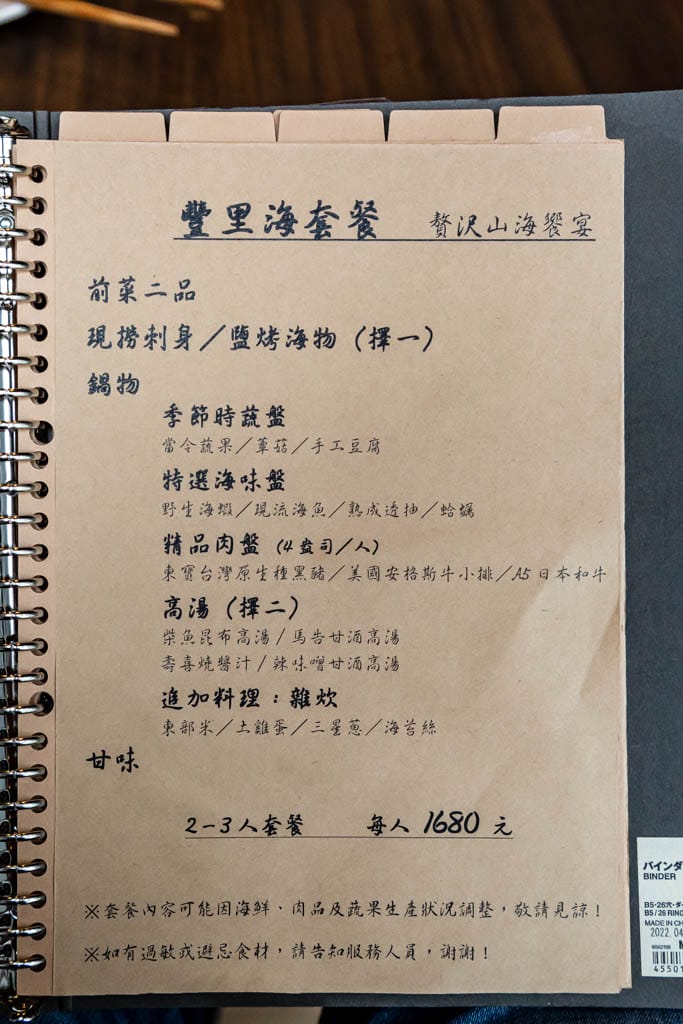 豐里海套餐 贅沢山海饗宴
前菜二品
現撈刺身／鹽烤海物（擇一）
鍋物
季節時蔬盤
當令蔬果／蕈菇／手工豆腐
特選海味盤
野生海蝦／現流海魚／熟成透抽／蛤蠣
精品肉盤（4盎司／人）
東寶台灣原生種黑豬／美國安格斯牛小排／A5日本和牛
高湯（擇二）
柴魚昆布高湯／馬告甘酒高湯
壽喜燒醬汁／辣味噌甘酒高湯
追加料理：雜炊
東部米／土雞蛋／三星蔥／海苔絲
甘味
2-3人套餐 每人 1680 元
※套餐內容可能因海鮮、肉品及蔬果生產狀況調整，敬請見諒！
※如有過敏或避忌食材，請告知服務人員，謝謝！
バインダ
BINDER
B5・26穴・ダ
B5/26 RING
MADE IN CH
2022.04
45501